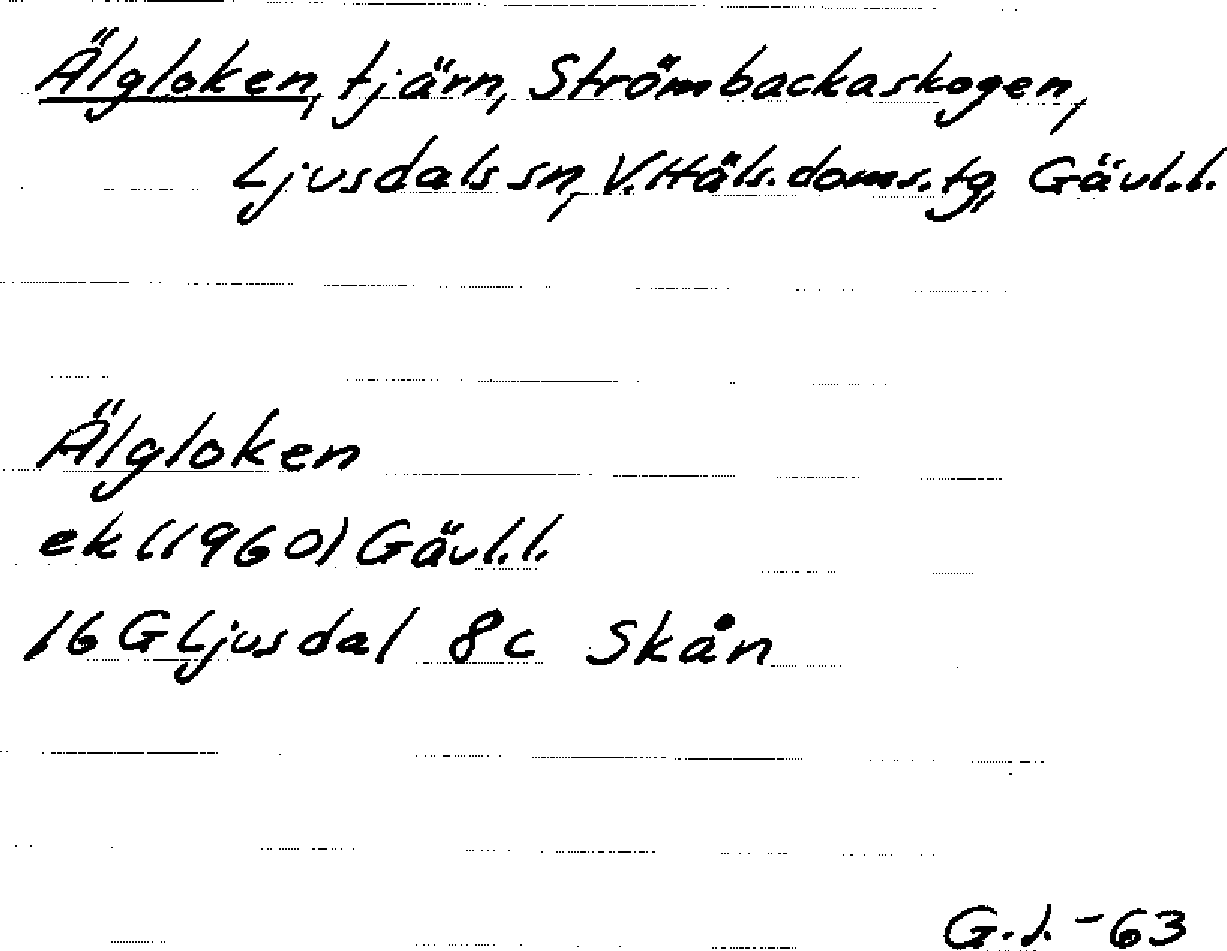 Älgloken, tjärn, Strömbackaskogen,
Ljusdals sn, V. Häls. doms. tg, Gävl. l.
Älgloken
ek (1960) Gävl. l.
16 G Ljusdal 8c Skån
G. J. -63